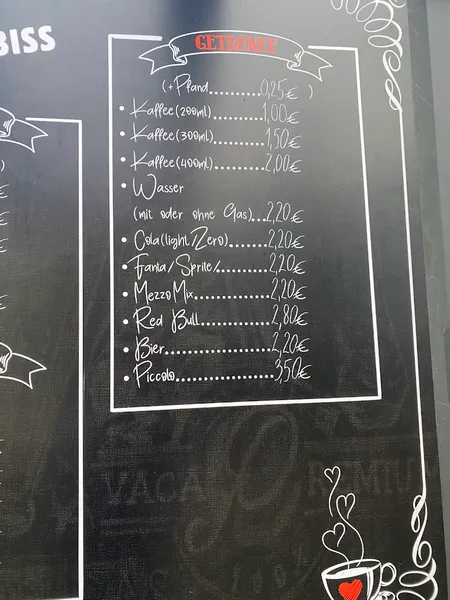 BISS
GETRÄNKE
(+ Pfand.........0,25€ )
• Kaffee(200ml).........1,00€
• Kaffee(300ml).........1,50€
• Kaffee(400ml).........2,00€
• Wasser
(mit oder ohne Gas)...2,20€
• Cola(light/Zero).......2,20€
• Fanta/Sprite/.........2,20€
• Mezzo Mix.............2,20€
• Red Bull..............2,80€
• Bier..................2,20€
• Piccolo...............3,50€